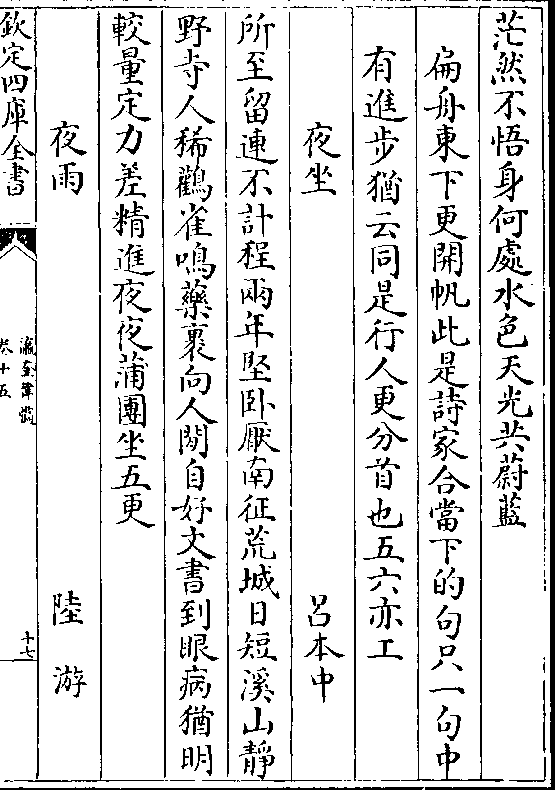 茫然不悟身何處水色天光共蔚藍
扁舟東下更開帆此是詩家合當下的句只一句中
有進步猶云同是行人更分首也五六亦工
夜坐 呂本中
所至留連不計程兩年堅卧厭南征荒城日短溪山靜
野寺人稀鸛雀鳴藥裹向人閑自好文書到眼病猶明
較量定力差精進夜夜蒲團坐五更
夜雨 陸游
欽定四庫全書
瀛奎律髓
卷十五
十七